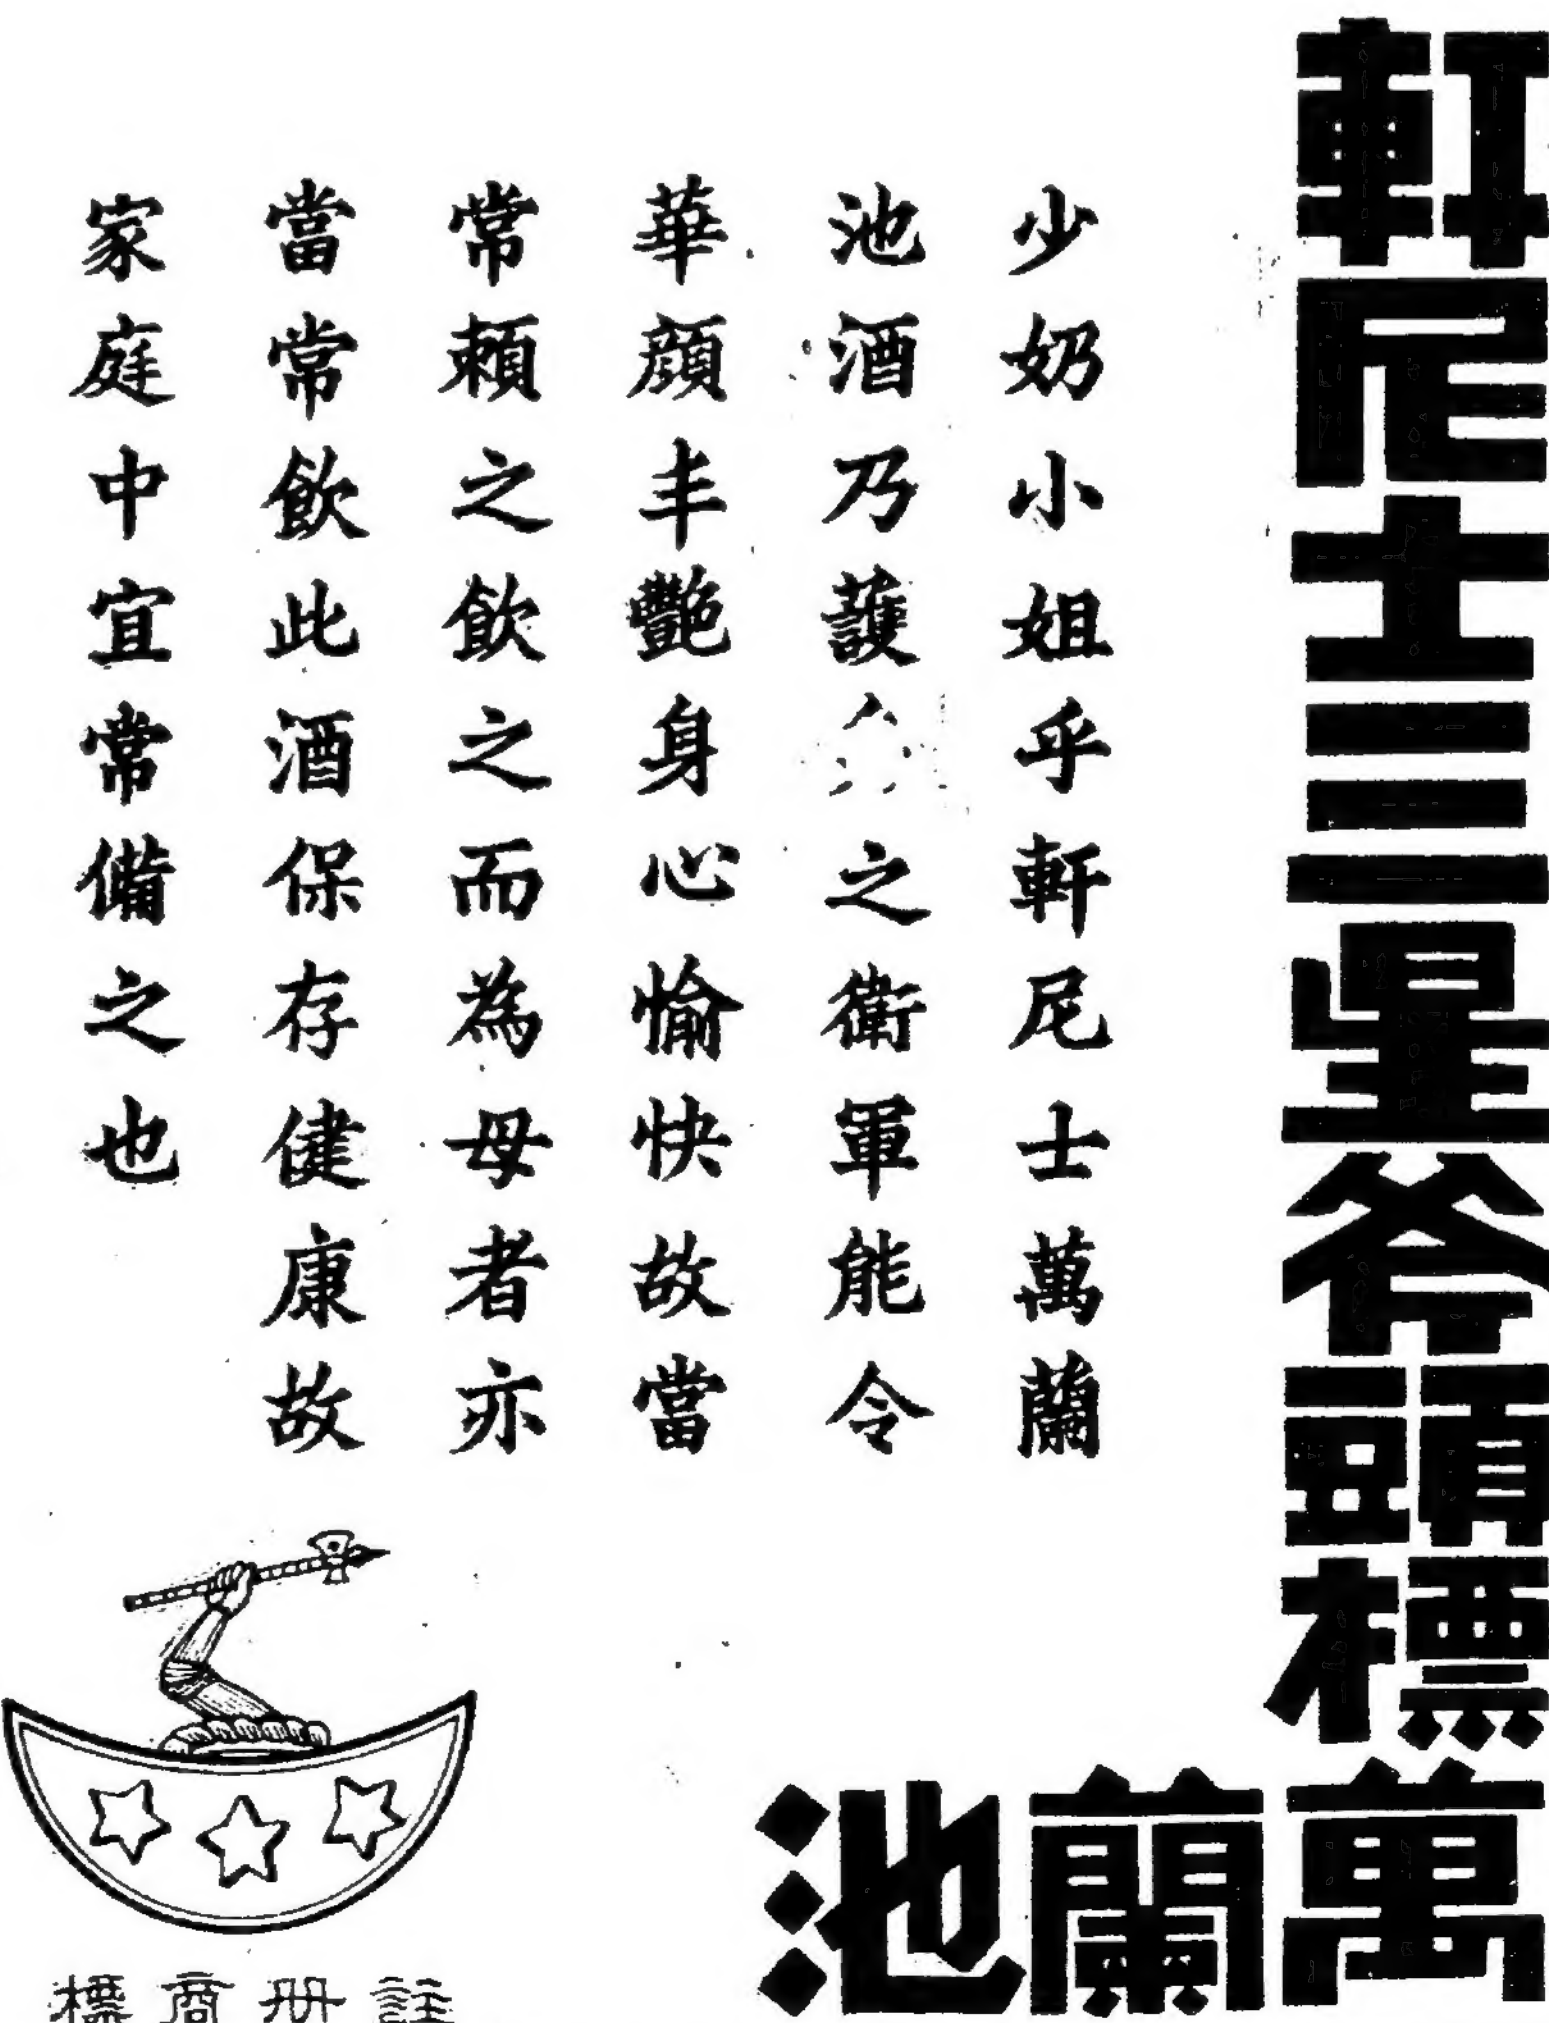 軒尼士三星斧頭標
萬蘭池
少奶小姐乎軒尼士萬蘭
池酒乃護之衛軍能令
華顏丰艷身心愉快故當
常賴之飲之而為母者亦
當常飲此酒保存健康故
家庭中宜常備之也
註册商標